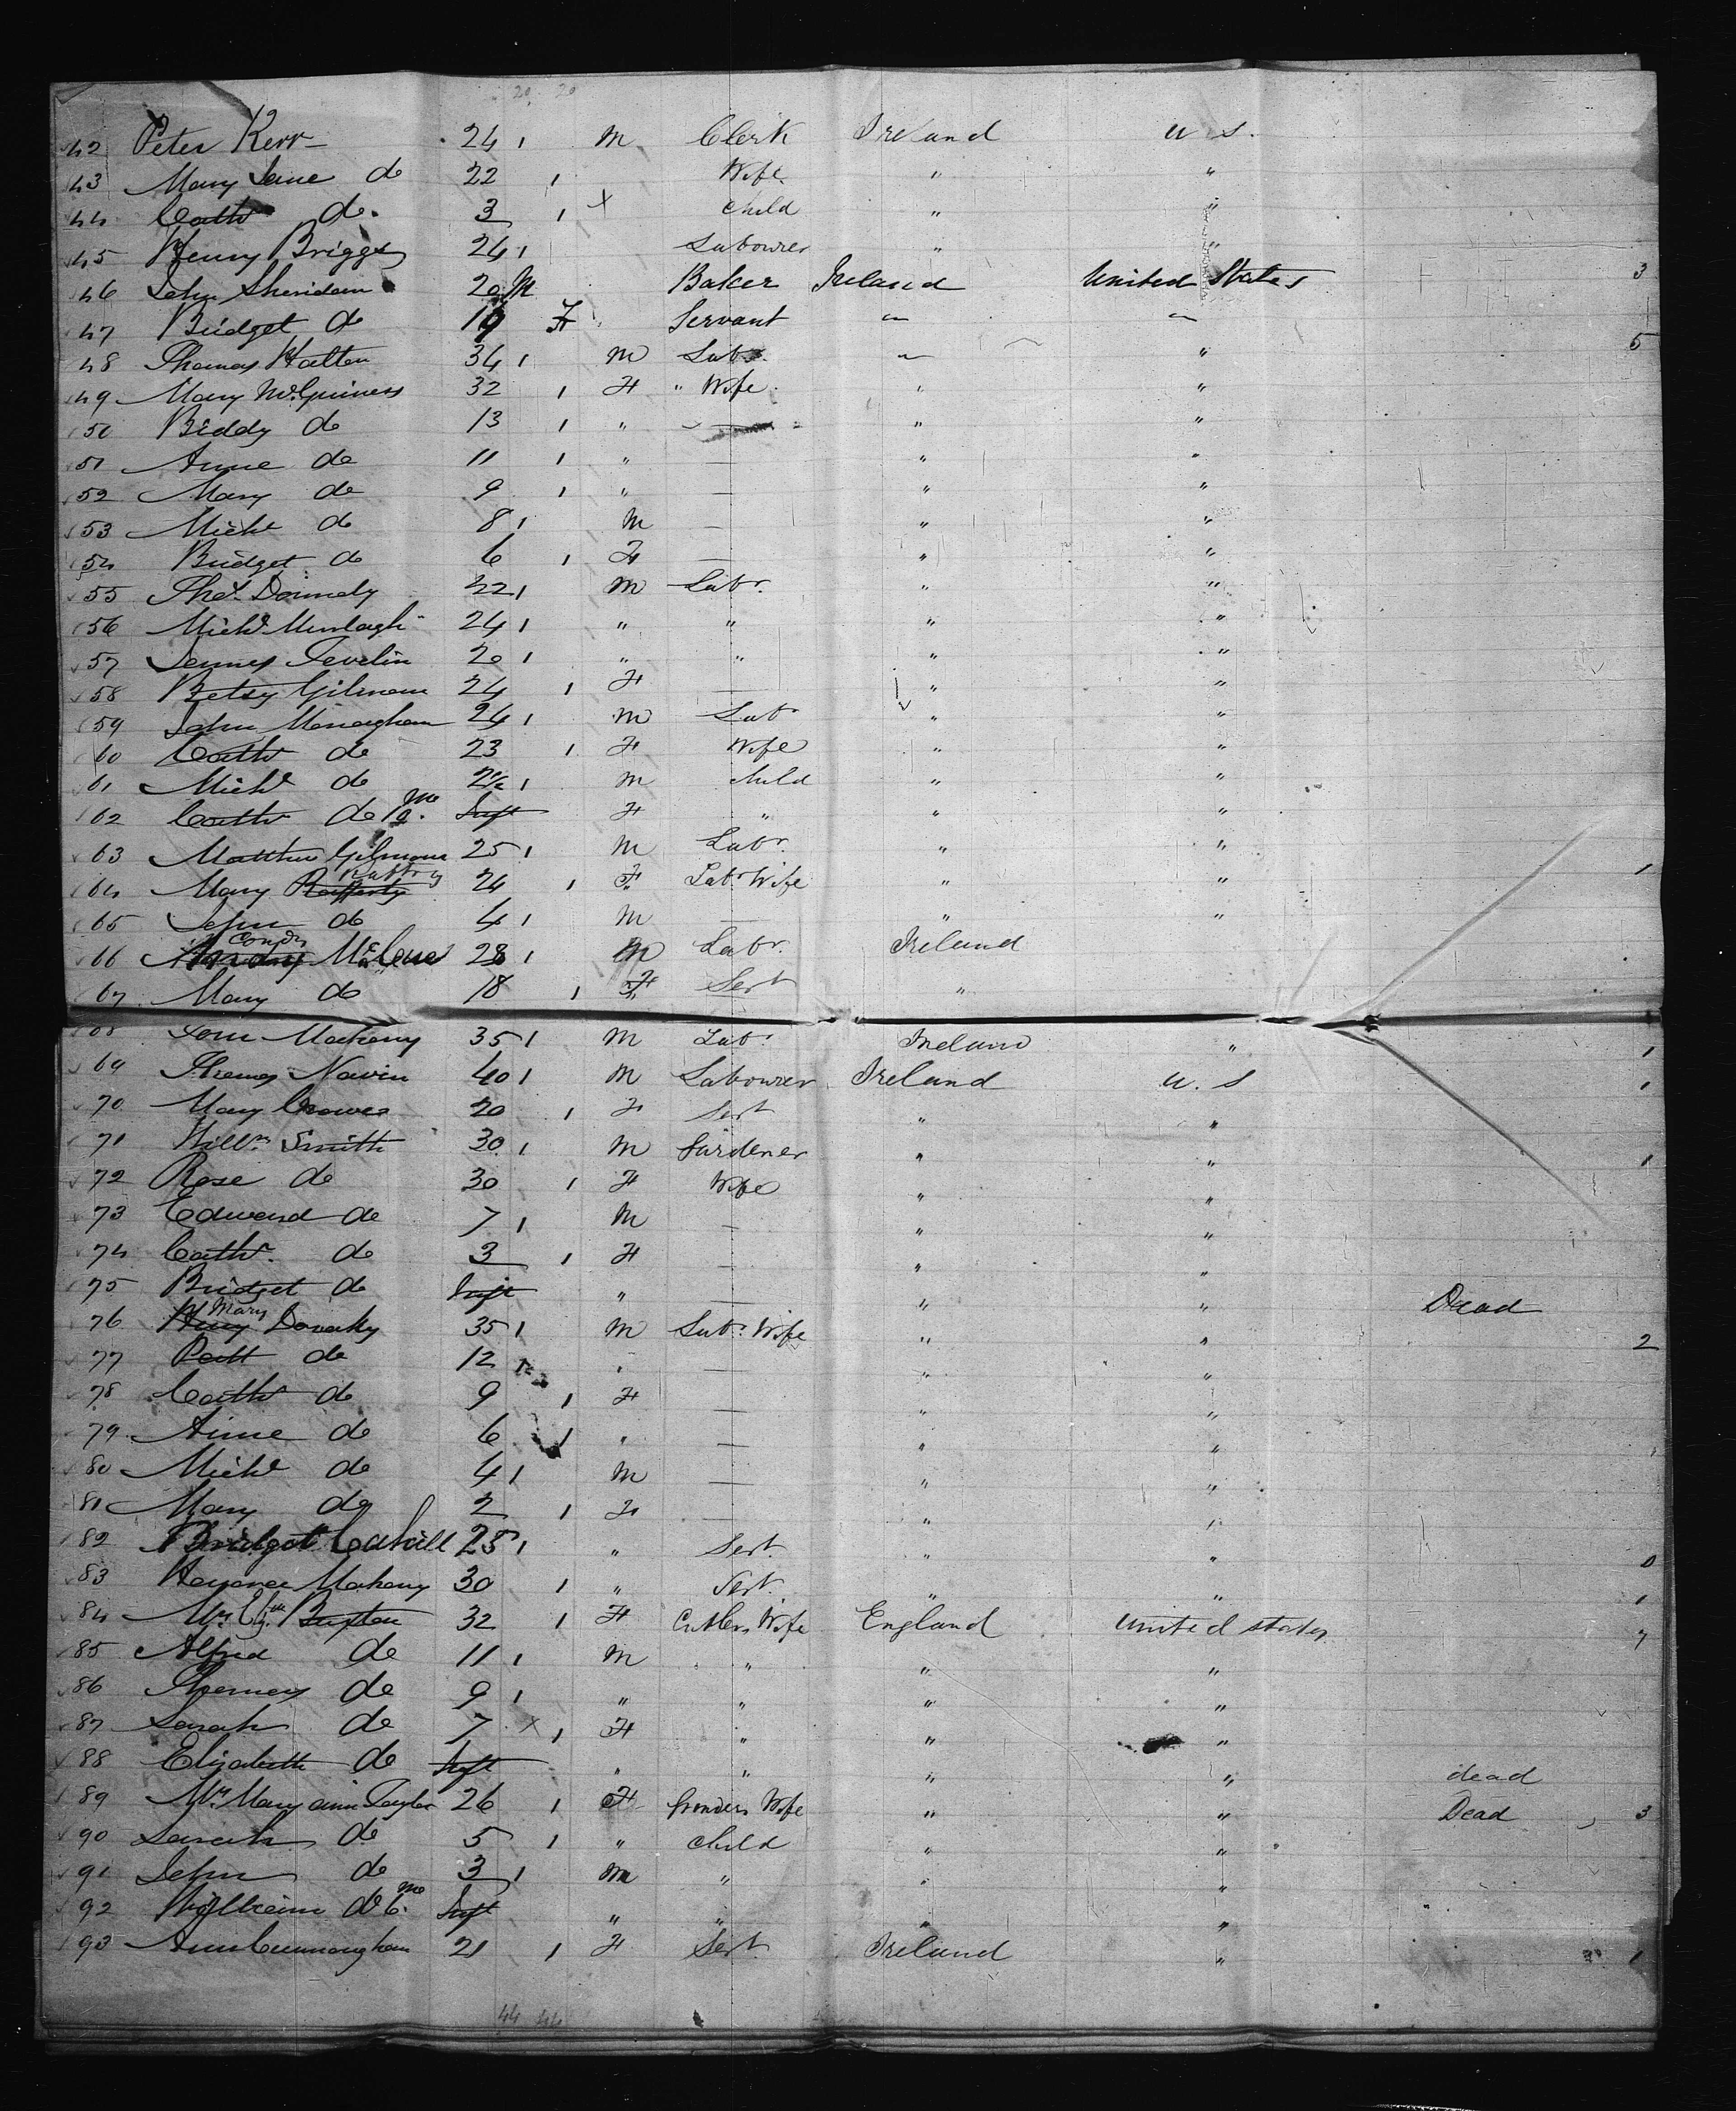 20 20
42 Peter Kerr 24 1 M Clerk Ireland U S.
43 Mary Jane do 22 1 Wife " "
44 Cath do. 3 1 X child " "
45 Henry Briggs 24 1 Labourer " "
46 John Sheridan 20 M Baker Ireland United States 3
47 Bridget do 19 F Servant " "
48 Thomas Hatten 34 1 M Labr. " " 5
49 Mary McGuiness 32 1 F " Wife " "
50 Biddy do 13 1 " — " "
51 Anne do 11 1 " — " "
52 Mary do 9 1 " — " "
53 Michl do 8 1 M — " "
54 Bridget do 6 1 F — " "
55 Thos. Donnely 22 1 M Labr. " "
56 Michl Murtagh 24 1 " " " "
57 James Devlin 20 1 " " " "
58 Betsy Gilmour 24 1 F — " "
59 John Monaghan 24 1 M Labr " "
60 Cath do 23 1 F Wife " "
61 Michl do 2½ 1 M child " "
62 Cath do Mo Inft F " " "
63 Matthew Gilmour 25 1 M Labr. " "
64 Mary Rafferty 24 1 F Labr. Wife " " 1
65 John do 4 1 M — " "
66 McCue 28 1 M Labr. Ireland
67 Mary do 18 1 F Sert "
68 Mahony 35 1 M Labr. Ireland " 1
69 Thomas Navin 40 1 M Labourer Ireland U. S 1
70 Mary Crowe 20 1 F Sert " "
71 Willm. Smith 30 1 M Gardener " " 1
72 Rose do 30 1 F Wife " "
73 Edward do 7 1 M — " "
74 Cathr. do 3 1 F — " "
75 Bridget do Inft " — " " Dead
76 Mary 35 1 M Labr. Wife " " 2
77 Patt do 12 1 " — " "
78 Cath do 9 1 F — " "
79 Anne do 6 1 " — " "
80 Michl do 4 1 M — " "
81 Mary do 2 1 F — " "
82 Bridget Cahill 25 1 " Sert. " " 0
83 Mahony 30 1 " Sert. " " 1
84 Mrs Buxton 32 1 F Cutlers Wife England United States 7
85 Alfred do 11 1 M " " "
86 Thomas do 9 1 " " " "
87 Sarah do 7 X 1 F " " "
88 Elizabeth do Inft " " " " dead
89 Mrs Mary ann Taylor 26 1 F Grinders Wife " " Dead 3
90 Sarah do 5 1 " child " "
91 John do 3 1 M " " "
92 William do 6. mo Inft " " " "
93 Ann Cunnangham 21 1 F Sert. Ireland " 1
44 46